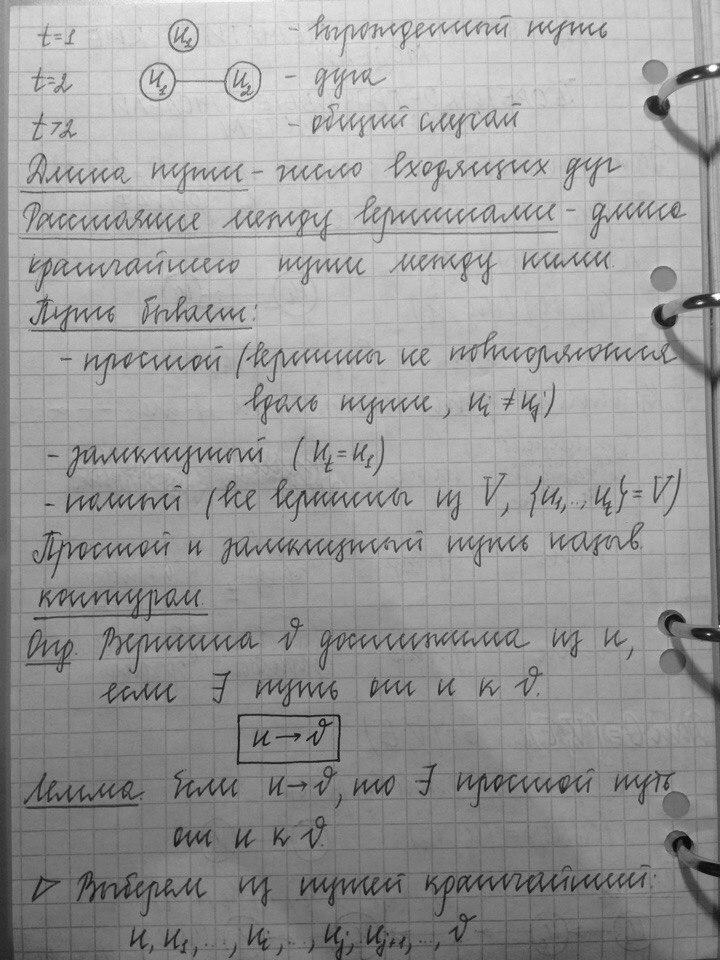 t=1 u₁ - вырожденный путь
t=2 u₁ u₂ - дуга
t>2 - общий случай
Длина пути - число входящих дуг
Расстояние между вершинами - длина
кратчайшего пути между ними
Путь бывает:
- простой (вершины не повторяются
вдоль пути, uᵢ ≠ uⱼ)
- замкнутый (uₜ = u₁)
- полный (все вершины из V, {u₁,..,uₜ} = V)
Простой и замкнутый путь назыв.
контуром.
Опр. Вершина v достижима из u,
если ∃ путь от u к v.
u → v
Лемма. Если u → v, то ∃ простой путь
от u к v.
▷ Выберем из путей кратчайший:
u, u₁, ..., uᵢ, ..., uⱼ, uⱼ₊₁, .., v